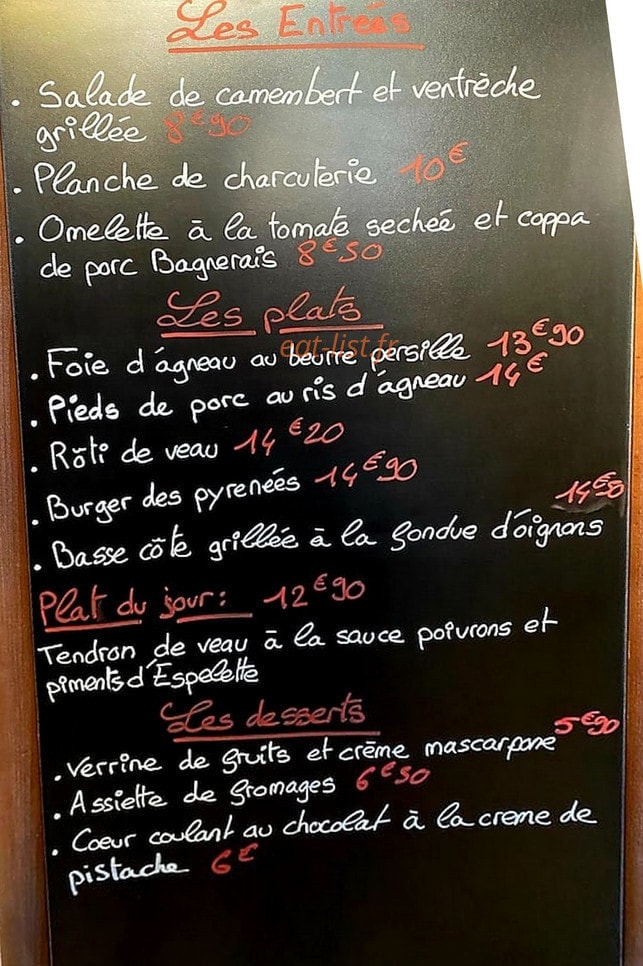 Les Entreés
. Salade de camembert et ventrèche
grillée 8€90
. Planche de charcuterie 10€
. Omelette à la tomate secheé et coppa
de porc Bagnerais 8€50
Les plats
eat-list.fr
. Foie d'agneau au beurre persille 13€90
. Pieds de porc au ris d'agneau 14€
. Rôti de veau 14€20
. Burger des pyreneés 14€90
. Basse côte grillée à la fondue d'oignons
Plat du jour: 12€90
Tendron de veau à la sauce poivrons et
piments d'Espelette
Les desserts
. Verrine de fruits et crème mascarpone 5€90
. Assiette de fromages 6€50
. Coeur coulant au chocolat à la creme de
pistache 6€